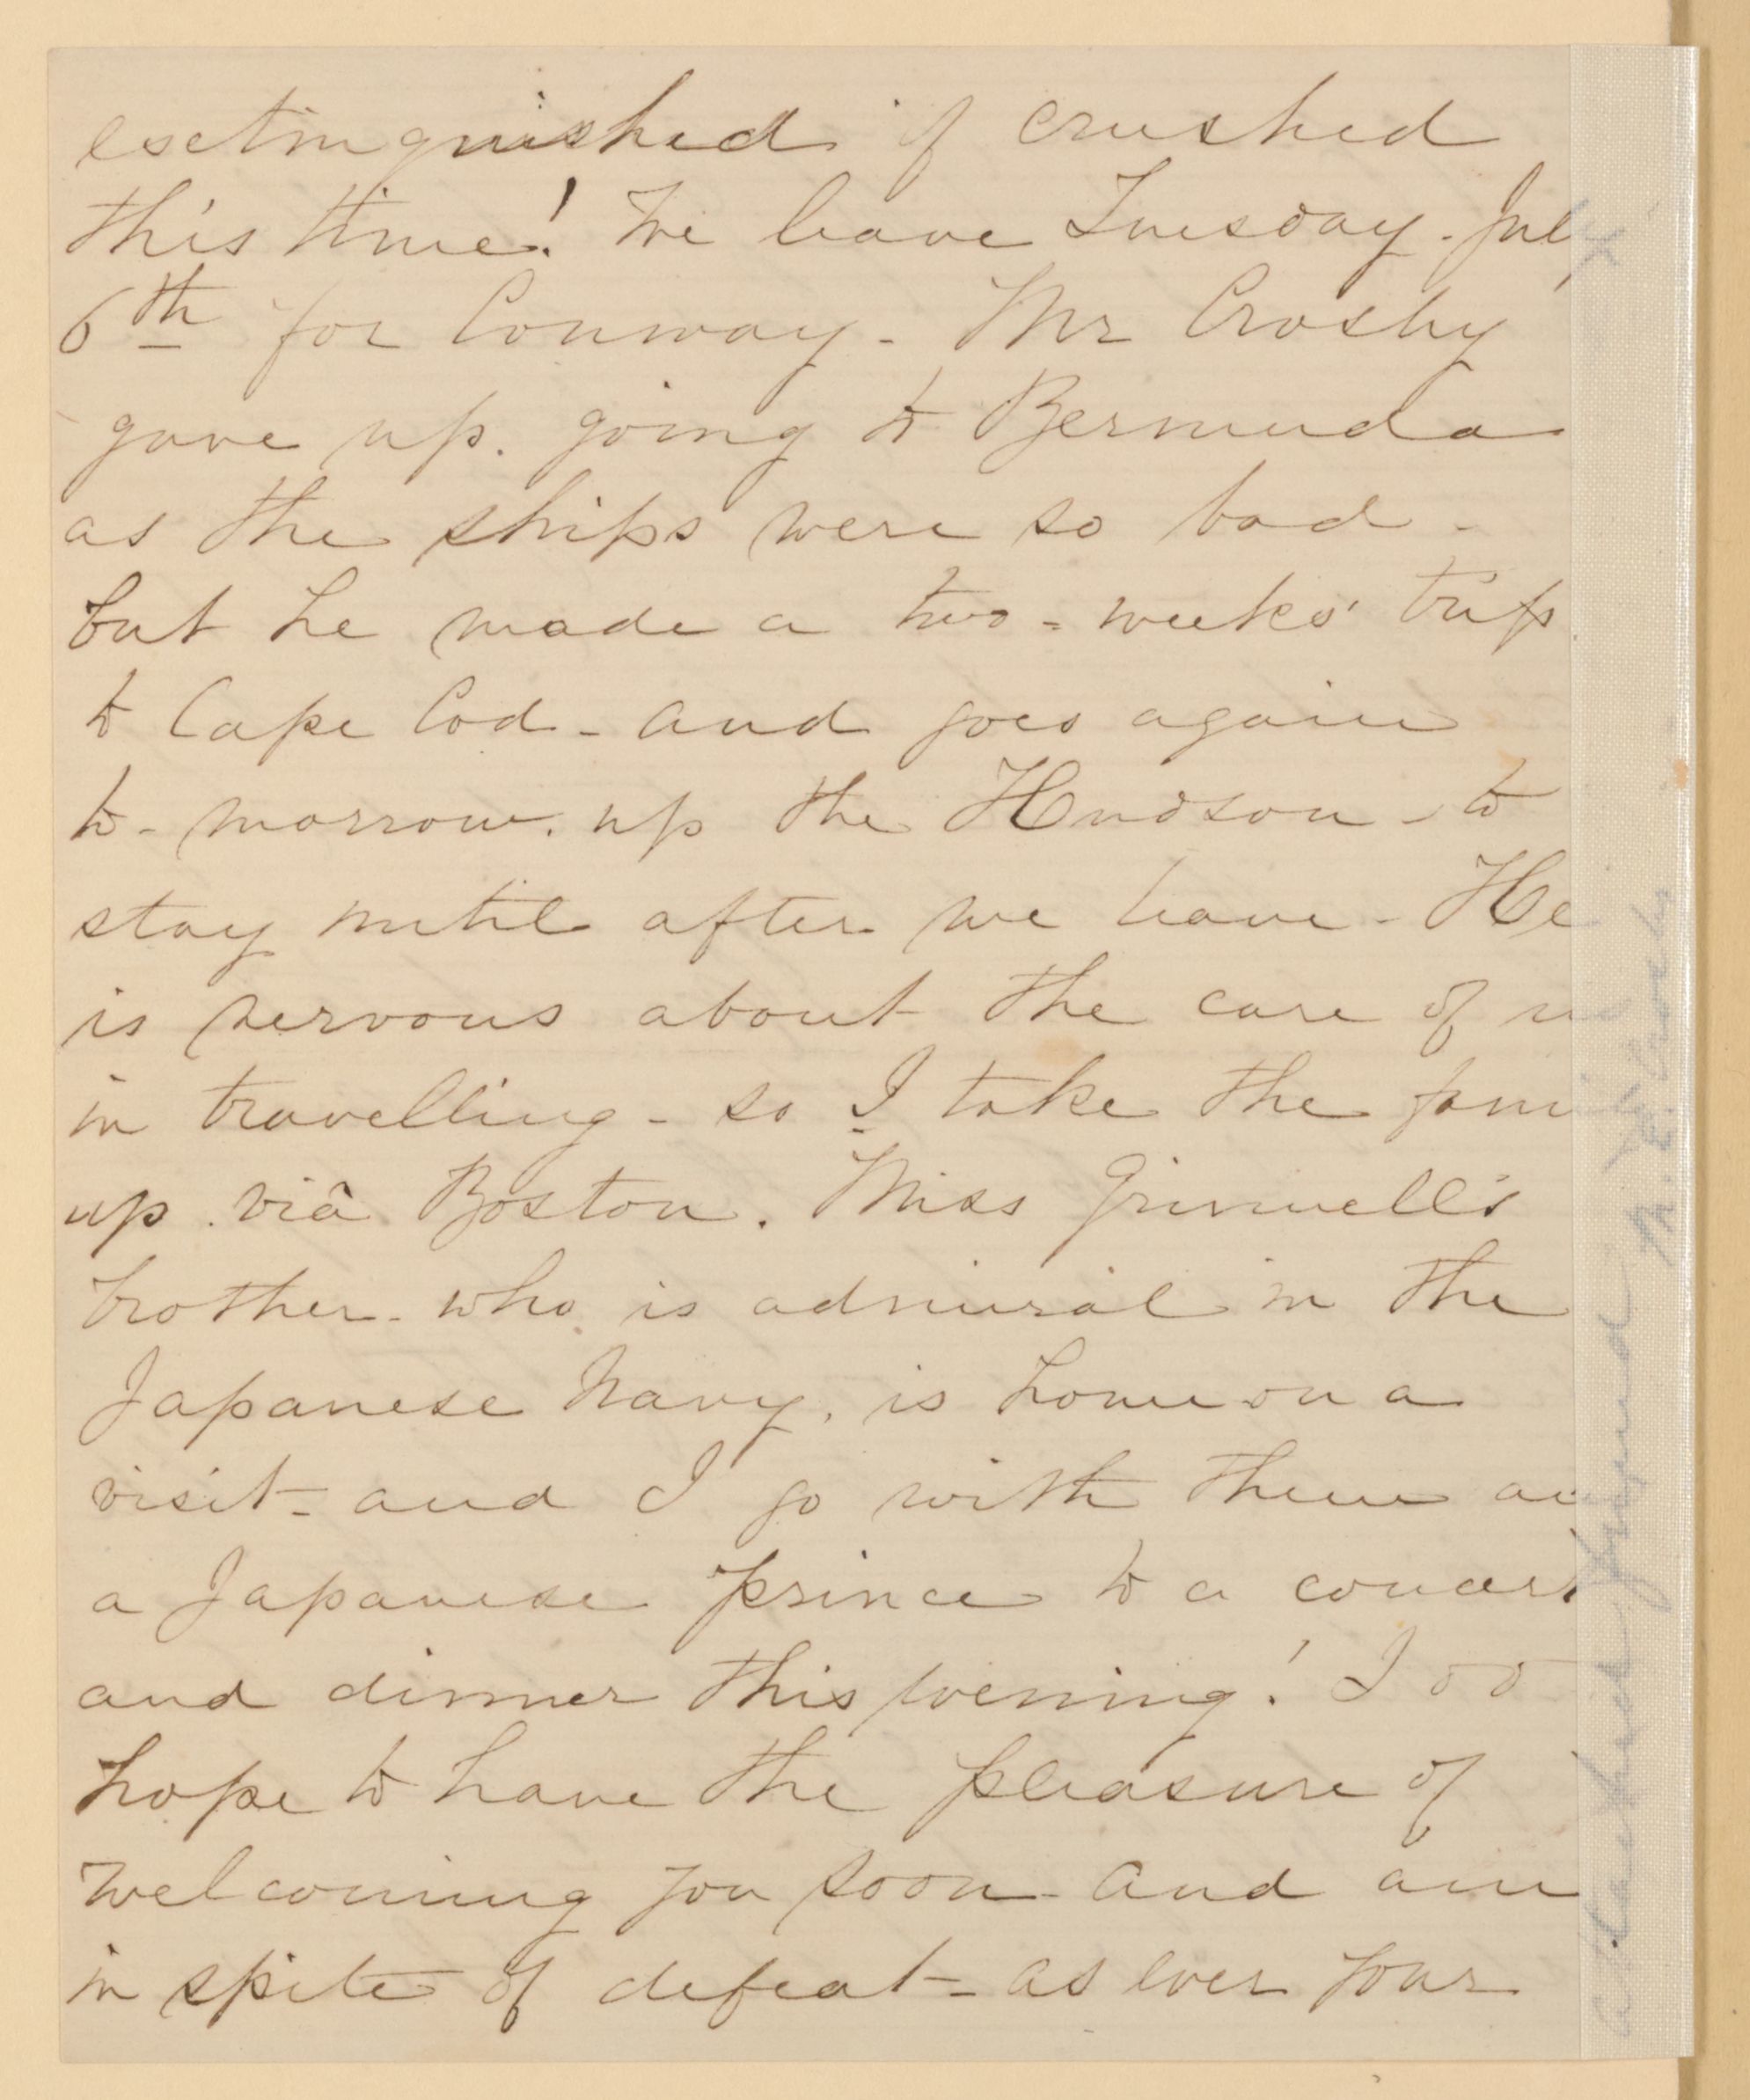 extinguished if crushed
this time! We leave Tuesday. July
6th for Conway - Mr Crosby
gave up. going to Bermuda
as the ships were so bad -
but he made a two-weeks' trip
to Cape Cod - and goes again
to-morrow. up the Hudson - to
stay until after we leave - He
is nervous about the care of
in travelling - so I take the
up. viâ Boston. Miss Grinnell's
brother - who is admiral in the
Japanese Navy, is home on a
visit - and I go with them
a Japanese prince to a concert
and dinner this evening! I do
hope to have the pleasure of
welcoming you soon - and am
in spite of defeat - as ever your
attached friend
M. E. Crosby